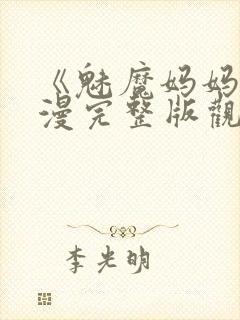 《魅魔妈妈
漫完整版觀
李光明